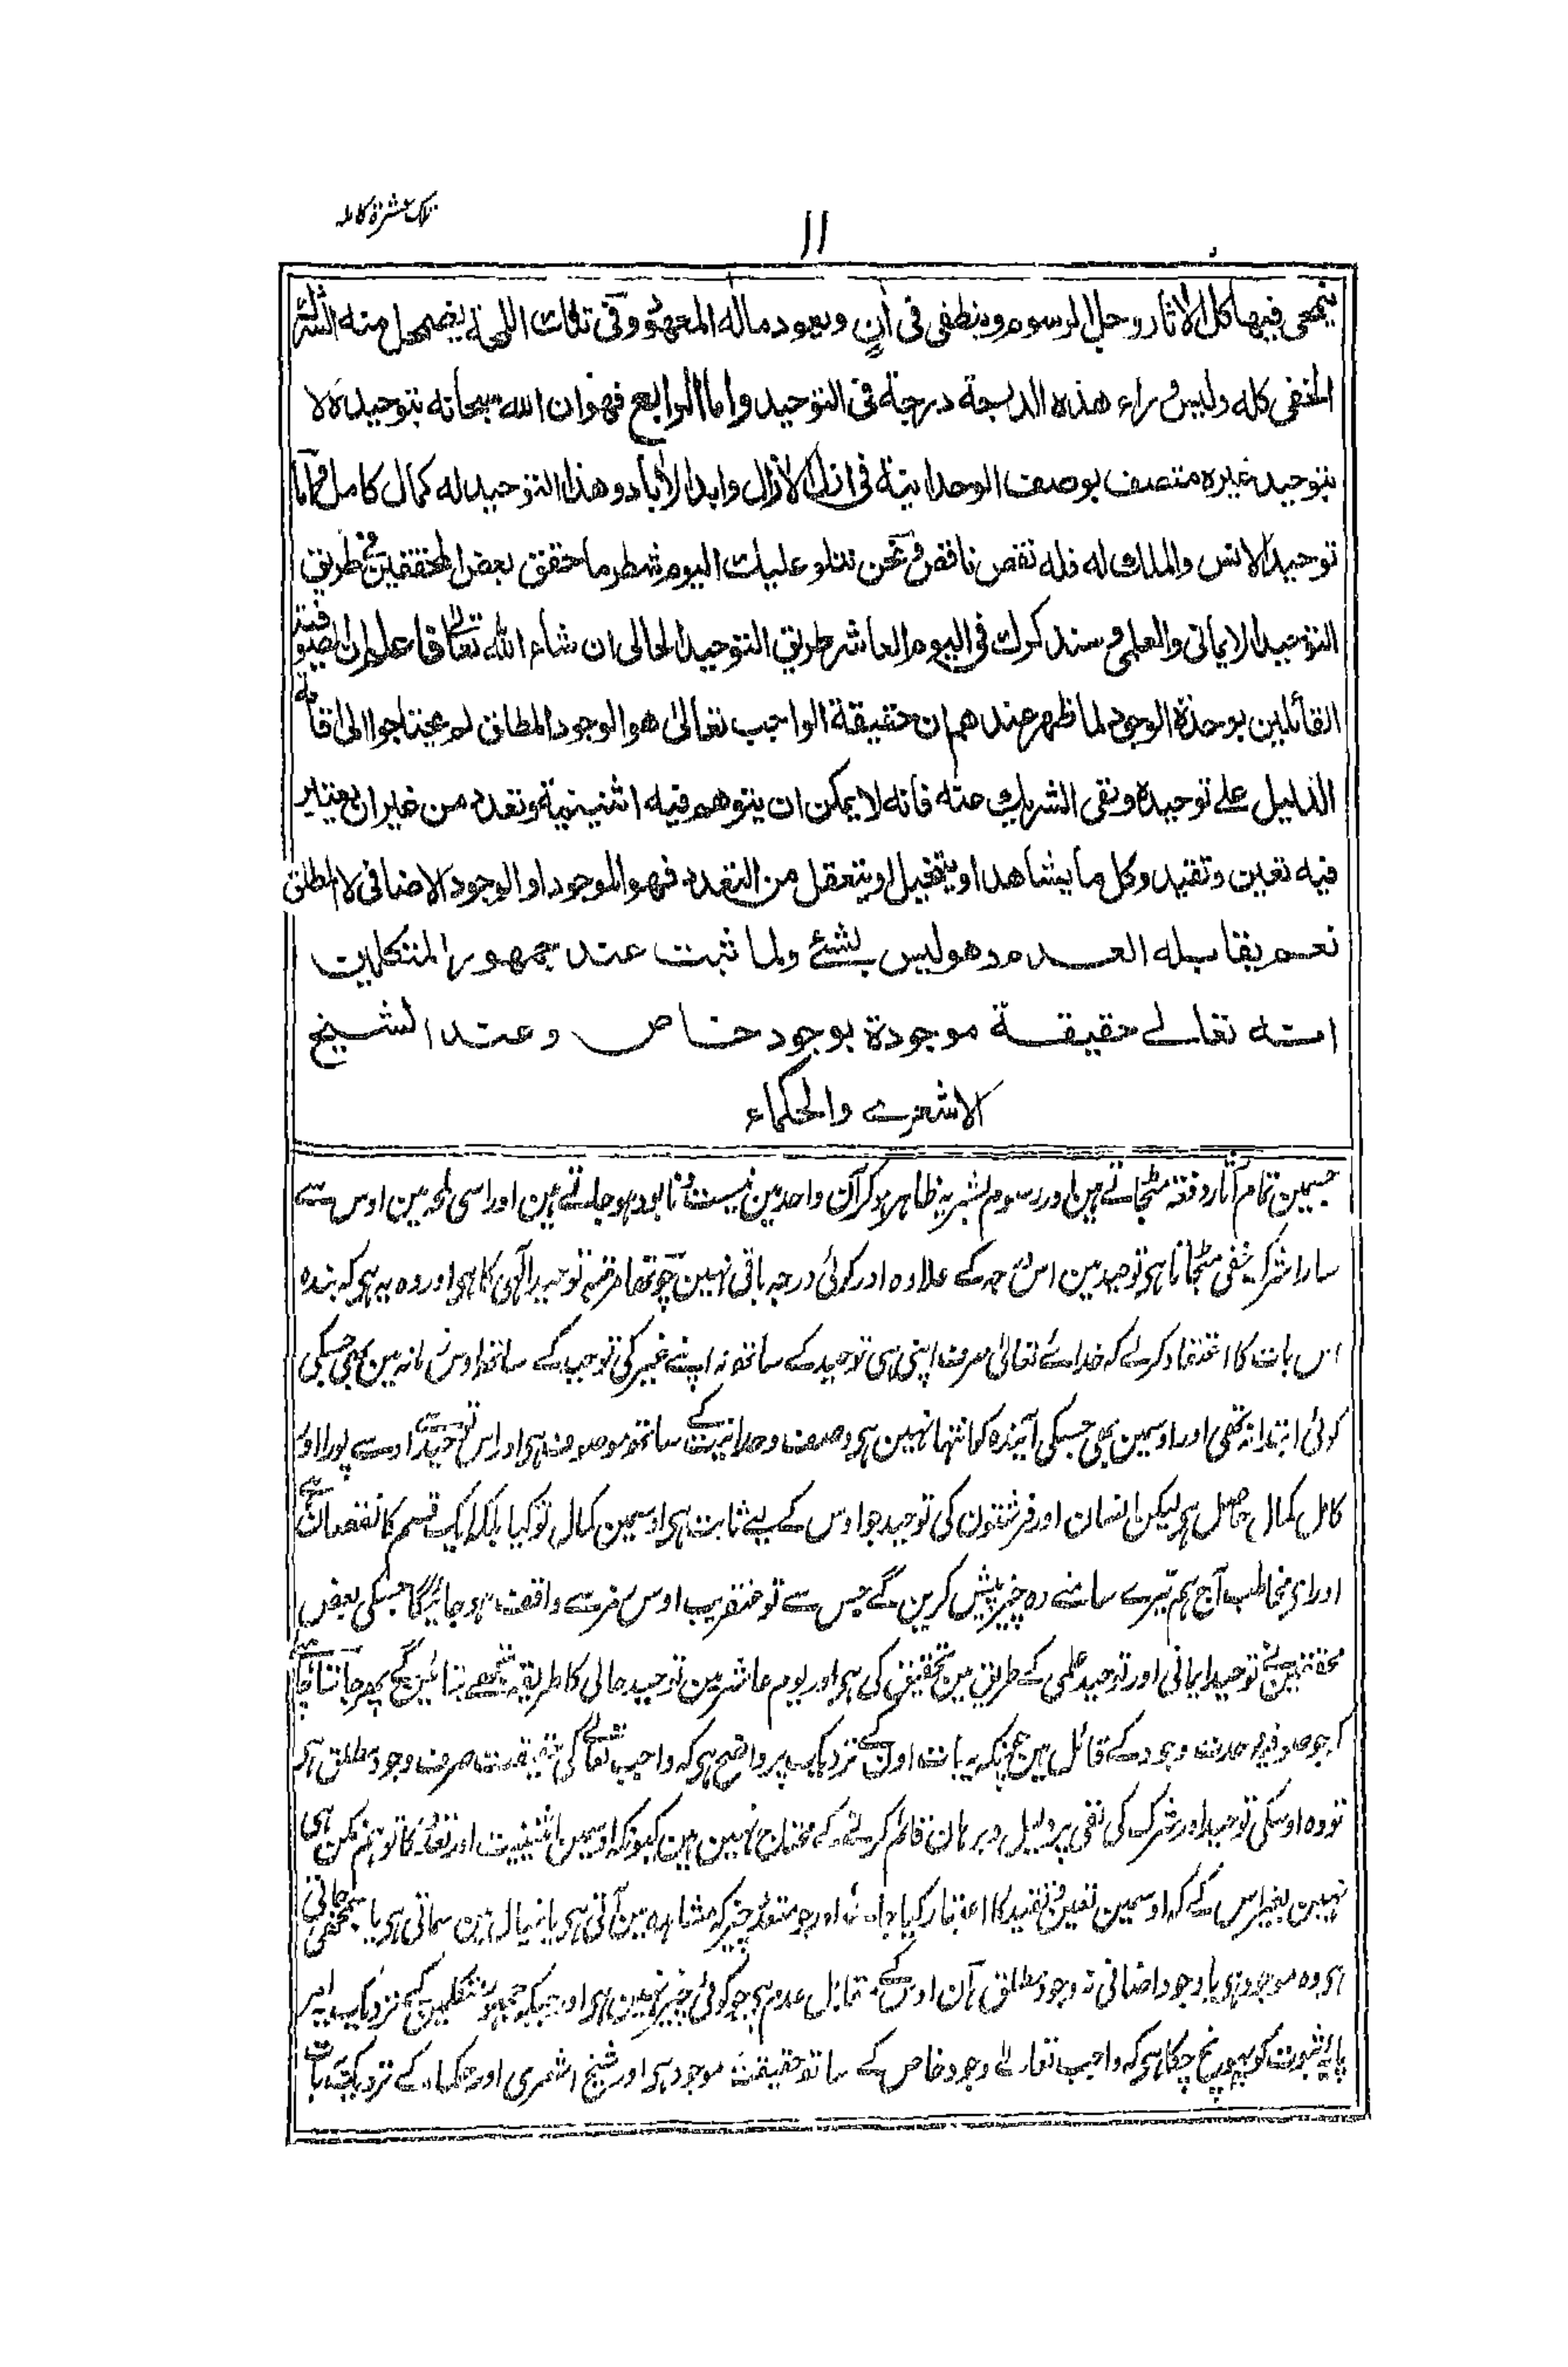 تلک عشرة کامله
۱۱
ینمحی فیها کل الاثار وجل الرسوم وینطفی فی آنٍ ویعود ماله المعهود وفی تلک اللمحة یضمحل منه الشرک
الخفی کله ولیس وراء هذه الدرجة درجة فی التوحید واما الرابع فهو ان الله سبحانه بتوحیده لا
بتوحید غیره متصف بوصف الوحدانیة فی ازل الازال وابد الاباد وهذا التوحید له کمال کامل واما
توحید الانس والملک له فله نقص ناقص ونحن نتلو علیک الیوم شطر ما حقق بعض المحققین من طریق
التوحید الایمانی والعلمی وسنذکرک فی الیوم العاشر طریق التوحید الحالی ان شاء الله تعالی فاعلم ان الصوفیة
القائلین بوحدة الوجود لما ظهر عندهم ان حقیقة الواجب تعالیٰ هو الوجود المطلق لم یحتاجوا الی اقامة
الدلیل علی توحیده ونفی الشریک عنه فانه لا یمکن ان یتوهم فیه اثنینیة وتعدد من غیر ان یعتبر
فیه تعین وتقید وکل ما یشاهد او یتخیل او یتعقل من التعدد فهو الموجود او الوجود الاضافی لا المطلق
نعم یقابله العدم وهو لیس بشئ ولما ثبت عند جمهور المتکلمین
انه تعالے حقیقة موجودة بوجود خاص وعند الشیخ
الاشعرے والحکماء
جسمین تمام آثار دفعۃ مٹجاتے ہین اور رسوم بشریہ ظاہر ہو کر آن واحد مین نیست و نابود ہو جاتے ہین اور اسی لمحہ مین اوس سے
سارا شرک خفی مٹجاتا ہی توحید مین اس درجہ کے علاوہ اور کوئی درجہ باقی نہین چوتھا مرتبہ توحید الٰہی کا ہی اور وہ یہ ہی کہ بندہ
اس بات کا اعتقاد کرلے کہ خداے تعالیٰ صرف اپنی ہی توحید کے ساتھ نہ اپنے غیر کی توحید کے ساتھ اوس زمانہ مین بھی جسکی
کوئی ابتدا نہ تھی اور اوسمین بھی جسکی آیندہ کو انتہا نہین ہی وصف وحدانیت کے ساتھ موصوف ہی اور اس توحید سے اوسے پورا اور
کامل کمال حاصل ہی لیکن انسان اور فرشتون کی توحید جو اوس کے لیے ثابت ہی اوسمین کمال تو کیا بلکہ ایک قسم کا نقصان ہے
اور ای مخاطب آج ہم تیرے سامنے وہ چیز پیش کرین گے جس سے تو عنقریب اوس امر سے واقف ہو جائیگا جسکی بعض
محققین نے توحید ایمانی اور توحید علمی کے طریق مین تحقیق کی ہی اور یوم عاشر مین توحید حالی کا طریقہ تجھے بتائین گے پھر جاننا چاہیے
کہ جو صوفیہ وحدت وجود کے قائل ہین چونکہ یہ بات اون کے نزدیک پر واضح ہی کہ واجب تعالیٰ کی حقیقت صرف وجود مطلق ہی
تو وہ اوسکی توحید اور شرک کی نفی پر دلیل و برہان قائم کرنے کے محتاج نہین ہین کیونکہ اوسمین اثنینیت اور تعدد کا توہم ممکن ہی
نہین بغیر اس کے کہ اوسمین تعین و تقید کا اعتبار کیا جائے اور جو متعدد چیز کہ مشاہدہ مین آتی ہی یا خیال مین سماتی ہی یا سمجھی جاتی
ہی وہ موجود ہی یا وجود اضافی نہ وجود مطلق ہان اوس کے مقابل عدم ہی جو کوئی چیز نہین ہی اور جبکہ جمہور متکلمین کے نزدیک یہ امر
پایۂ ثبوت کو پہونچ چکا ہی کہ واجب تعالے وجود خاص کے ساتھ حقیقت موجود ہی اور شیخ اشعری اور حکماء کے نزدیک یہ بات